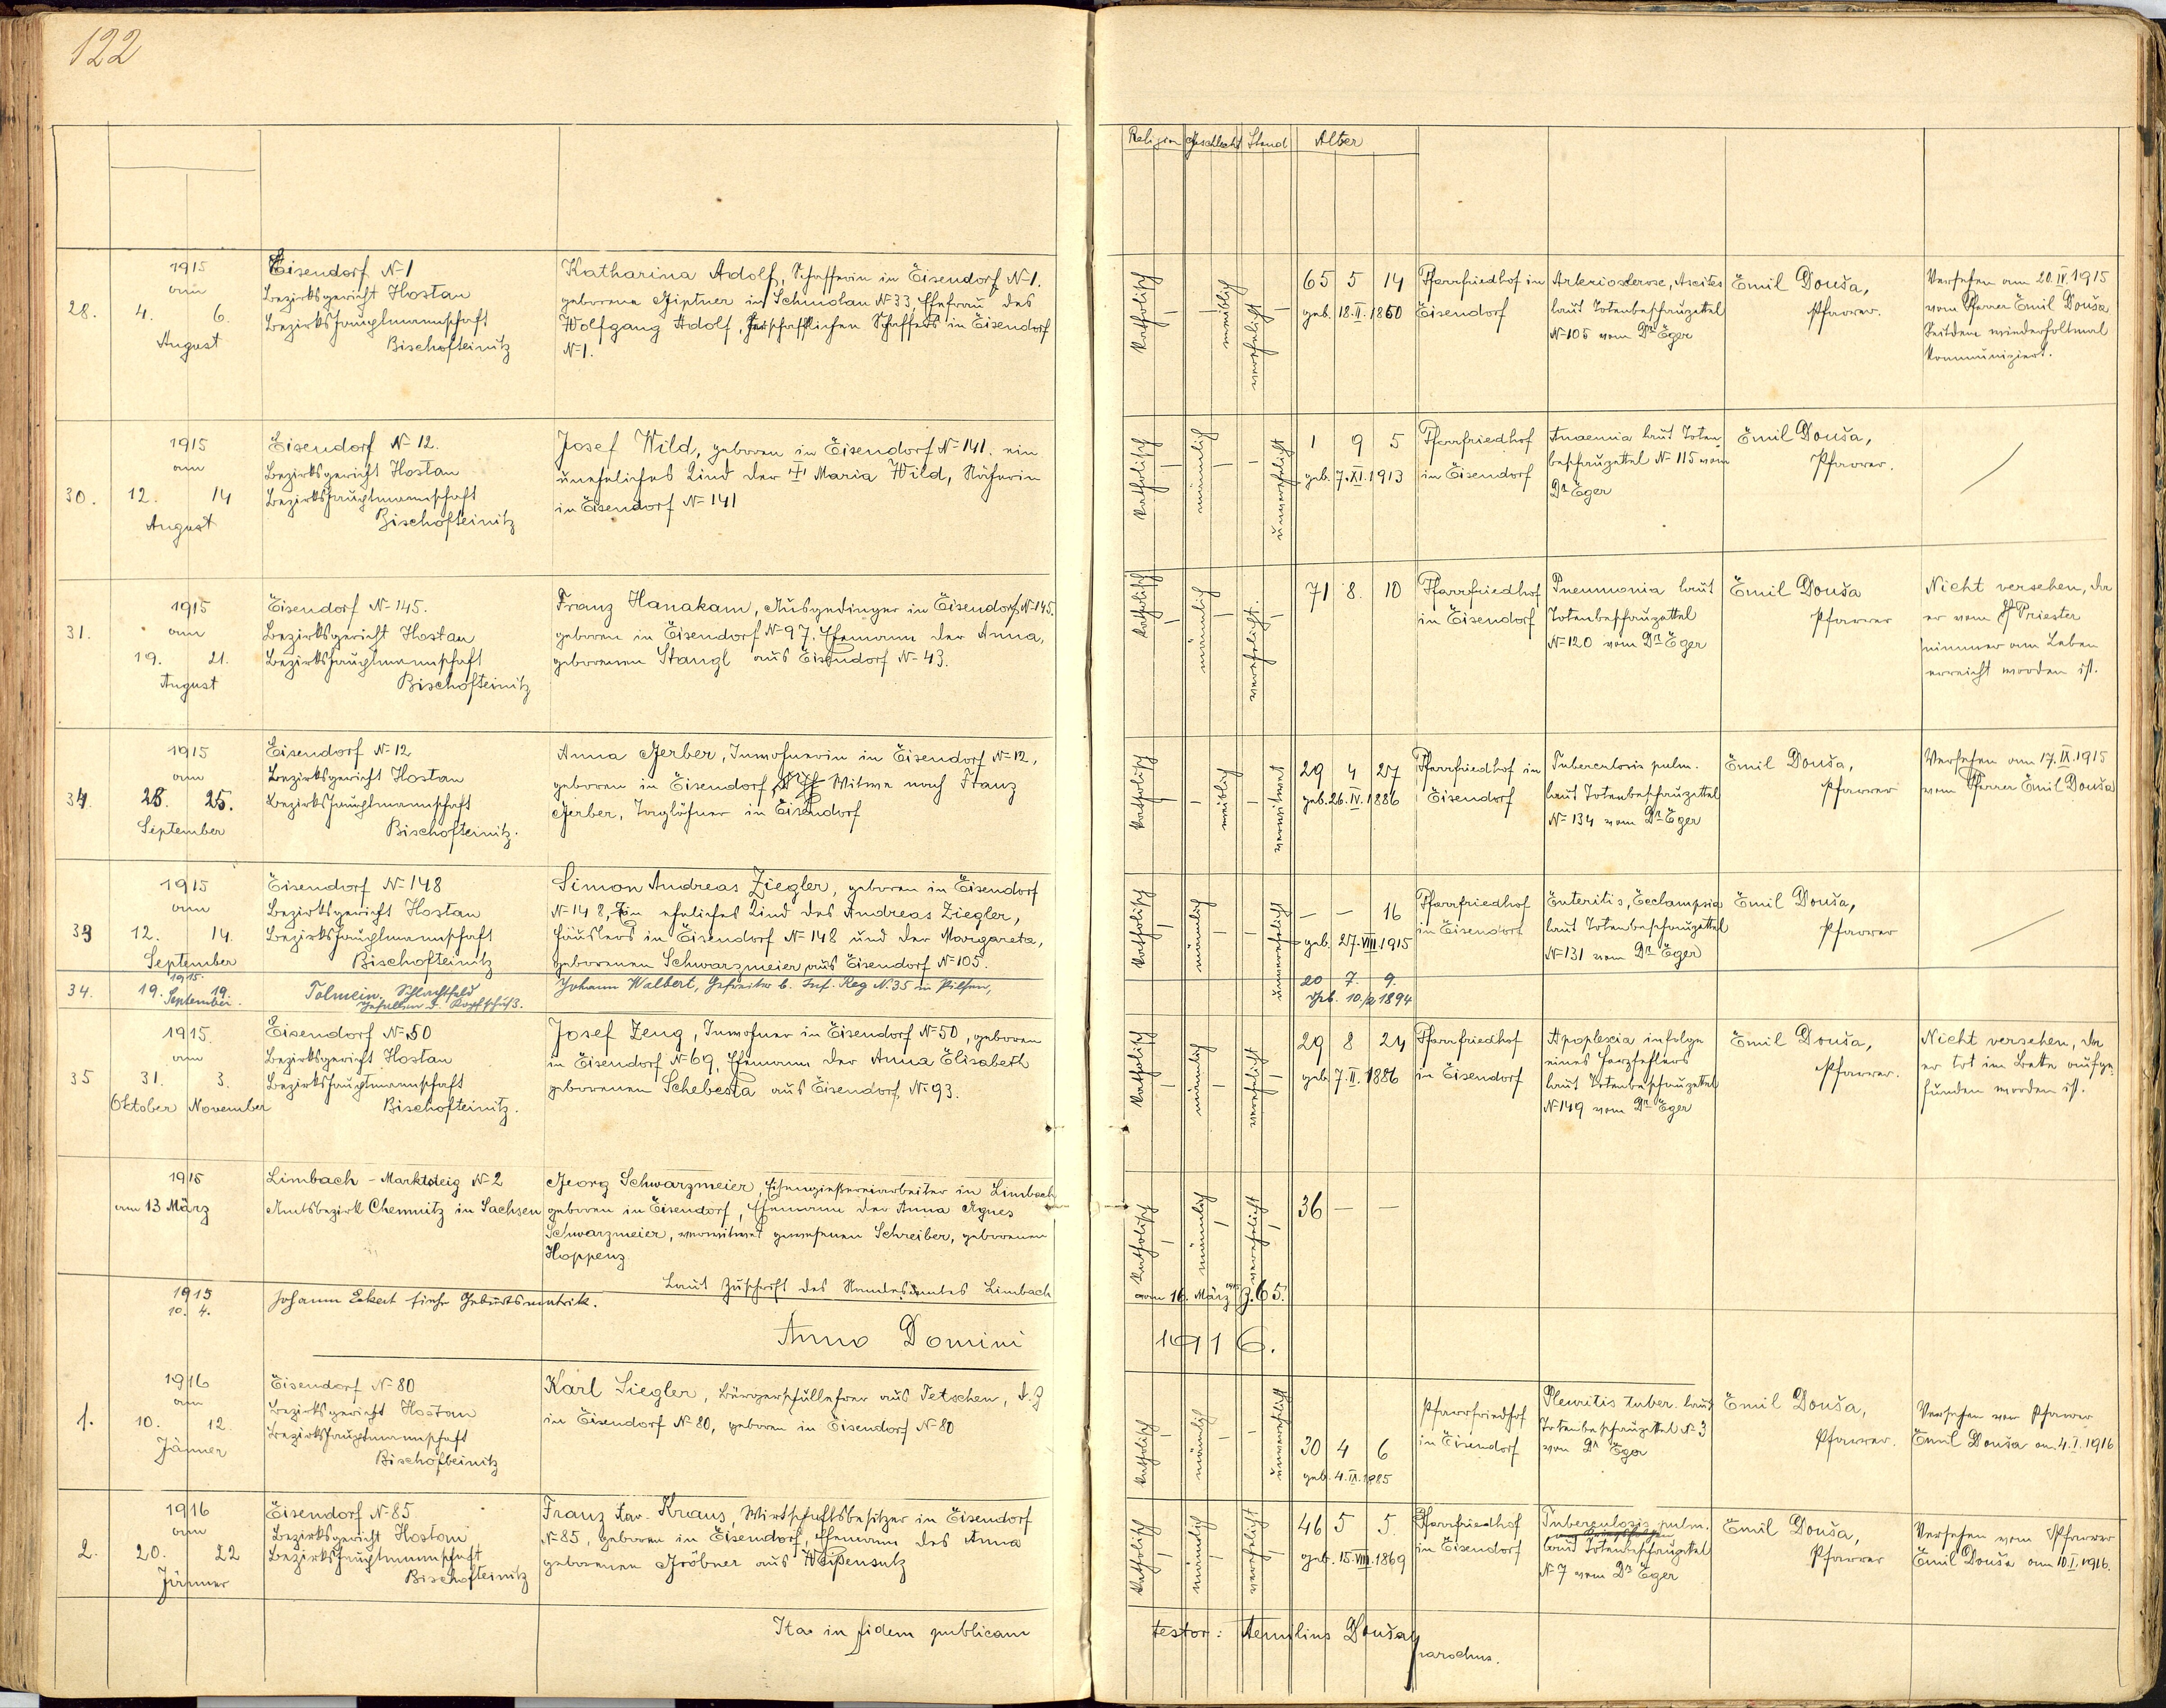 122
Religion Geschlecht Stand Alter
28.
1915
am
4. 6.
August
Eisendorf N-1
Bezirksgericht Hostau
Bezirkshauptmannschaft
Bischofteinitz
Katharina Adolf, Schafferin in Eisendorf N-1.
geborene Giptner in Schmolau N-33, Ehefrau des
Wolfgang Adolf, herschaftlichen Schaffers in Eisendorf
N-1.
katholisch
weiblich
verehelicht
65 5 14
geb. 18.II.1850
Pfarrfriedhof in
Eisendorf
Arteriosclerose, Ascites
laut Totenbeschauzettel
N-105 vom Dr Eger
Emil Douša,
Pfarrer.
Versehen am 20.IV.1915
vom Pfarrer Emil Douša
Seitdem wiederholtmal
kommuniziert.
30.
1915
am
12. 14
August
Eisendorf N-12.
Bezirksgericht Hostau
Bezirkshauptmannschaft
Bischofteinitz
Josef Wild, geboren in Eisendorf N-141. ein
uneheliches Kind der Maria Wild, Näherin
in Eisendorf N-141
katholisch
männlich
unverehelicht
1 9 5
geb. 7.XI.1913
Pfarrfriedhof
in Eisendorf
Anaemia laut Toten-
beschauzettel N-115 vom
Dr Eger
Emil Douša,
Pfarrer.
31.
1915
am
19. 21.
August
Eisendorf N-145.
Bezirksgericht Hostau
Bezirkshauptmannschaft
Bischofteinitz
Franz Hanakam, Ausgedinger in Eisendorf N-145.
geboren in Eisendorf N-97. Ehemann der Anna,
geborenen Stangl aus Eisendorf N-43.
katholisch
männlich
verehelicht.
71 8. 10
Pfarrfriedhof
in Eisendorf
Pneumonia laut
Totenbeschauzettel
N-120 vom Dr Eger
Emil Douša
Pfarrer
Nicht versehen, da
er vom Priester
nimmer am Leben
erreicht worden ist.
34.
1915
am
23. 25.
September
Eisendorf N-12
Bezirksgericht Hostau
Bezirkshauptmannschaft
Bischofteinitz.
Anna Gerber, Inwohnerin in Eisendorf N-12,
geboren in Eisendorf Witwe nach Franz
Gerber, Taglöhner in Eisendorf
katholisch
weiblich
verwitwet
29 4 27
geb. 26.IV.1886
Pfarrfriedhof in
Eisendorf
Tuberculosis pulm.
laut Totenbeschauzettel
N-134 vom Dr Eger
Emil Douša,
Pfarrer
Versehen am 17.IX.1915
vom Pfarrer Emil Douša
33
1915
am
12. 14.
September
Eisendorf N-148
Bezirksgericht Hostau
Bezirkshauptmannschaft
Bischofteinitz
Simon Andreas Ziegler, geboren in Eisendorf
N-148, ein eheliches Kind des Andreas Ziegler,
Häuslers in Eisendorf N-148 und der Margareta,
geborenen Schwarzmeier aus Eisendorf N-105.
katholisch
männlich
unverehelicht
— — 16
geb. 27.VIII.1915
Pfarrfriedhof
in Eisendorf
Enteritis, Ecclampsia
laut Totenbeschauzettel
N-131 vom Dr Eger
Emil Douša,
Pfarrer
34.
1915.
19. September 19.
Tolmein. Schlachtfeld
Gefallen d. Kopfschuß.
Johann Walbert, Gefreiter b. Inf. Reg N.35 in Pilsen,
20 7. 9.
Geb. 10/2 1894
35
1915.
am
31. 3.
Oktober November
Eisendorf N-50
Bezirksgericht Hostau
Bezirkshauptmannschaft
Bischofteinitz.
Josef Zeug, Inwohner in Eisendorf N-50, geboren
in Eisendorf N-69, Ehemann der Anna Elisabeth
geborenen Schebesta aus Eisendorf N-93.
katholisch
männlich
verehelicht
29 8 24
geb. 7.II.1886
Pfarrfriedhof
in Eisendorf
Apoplexia infolge
eines Herzfehlers
laut Totenbeschauzettel
N-149 vom Dr Eger
Emil Douša,
Pfarrer.
Nicht versehen, da
er tot im Bette aufge-
funden worden ist.
1915
am 13 März
Limbach - Marktsteig N-2
Amtsbezirk Chemnitz in Sachsen
Georg Schwarzmeier, Eisengießereiarbeiter in Limbach
geboren in Eisendorf, Ehemann der Anna Agnes
Schwarzmeier, verwitwet gewesenen Schreiber, geborenen
Hoppenz
Laut Zuschrift des Standesamtes Limbach
katholisch
männlich
verehelicht
36 — —
vom 16. März 1915 Z. 65.
1915
10. 4.
Johann Eckert siehe Geburtsmatrik.
Anno Domini
1916.
1.
1916
am
10. 12.
Jänner
Eisendorf N-80
Bezirksgericht Hostau
Bezirkshauptmannschaft
Bischofteinitz
Karl Siegler, Bürgerschullehrer aus Tetschen, d. Z
in Eisendorf N-80, geboren in Eisendorf N-80
katholisch
männlich
unverehelicht
30 4 6
geb. 4.IX.1885
Pfarrfriedhof
in Eisendorf
Pleuritis tuber. laut
Totenbeschauzettel N-3
vom Dr Eger
Emil Douša,
Pfarrer.
Versehen vom Pfarrer
Emil Douša am 4.I.1916
2.
1916
am
20. 22
Jänner
Eisendorf N-85
Bezirksgericht Hostau
Bezirkshauptmannschaft
Bischofteinitz
Franz Xav. Kraus, Wirtschaftsbesitzer in Eisendorf
N-85, geboren in Eisendorf, Ehemann des Anna
geborenen Gröbner aus Weißensulz
katholisch
männlich
verehelicht
46 5 5.
geb. 15.VIII.1869
Pfarrfriedhof
in Eisendorf
Tuberculosis pulm.
laut Totenbeschauzettel
N-7 vom Dr Eger
Emil Douša,
Pfarrer
Versehen vom Pfarrer
Emil Douša am 10.I.1916.
Ita in fidem publicam
testor: Aemilius Douša,
parochus.